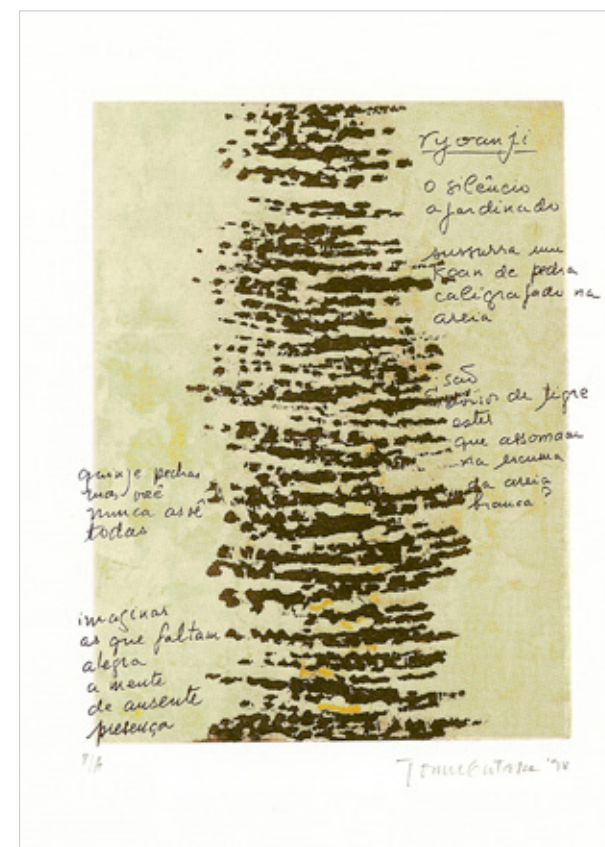 ryoanji
o silêncio
ajardinado
sussurra um
koan de pedra
caligrafado na
areia
são
dorsos de tigre
estes
que assomam
na escuma
da areia
branca?
quinze pedras
mas você
nunca as vê
todas
imaginar
as que faltam
alegra
a mente
de ausente
presença
P/A
Tomie Ohtake